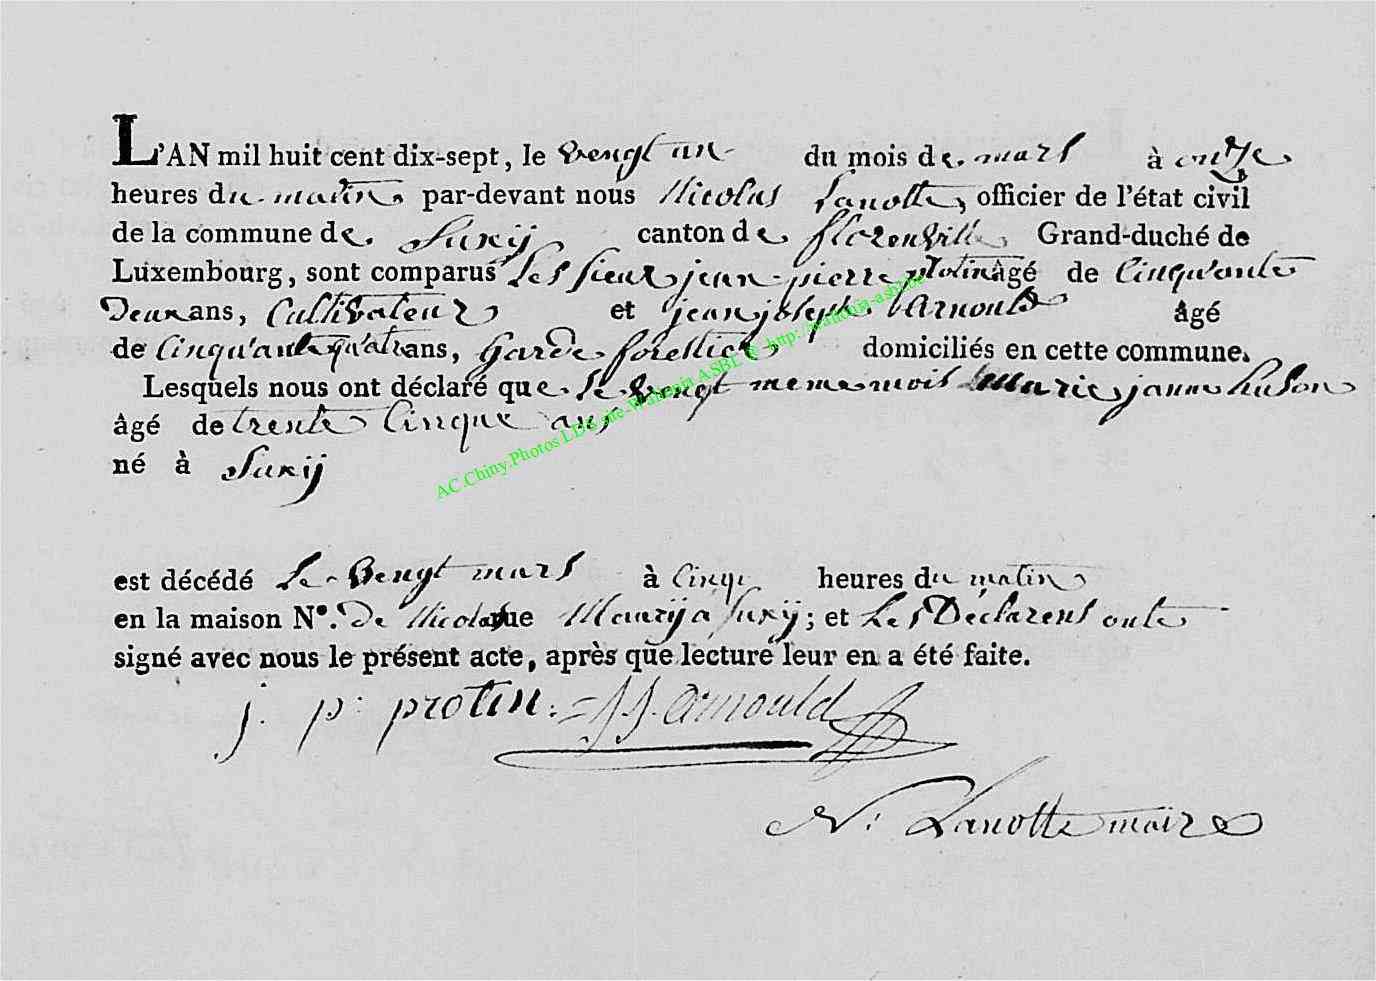 L'AN mil huit cent dix-sept, le vengt un du mois de mars à onze
heures du matin par-devant nous Nicolas Lanotte, officier de l'état civil
de la commune de Suxÿ canton de florenville Grand-duché de
Luxembourg, sont comparus Les sieur jean pierre âgé de Cinqu'ante
Deux ans, Cultivateur et jean joseph Arnould âgé
de Cinqu'ante qu'atre ans, Garde forestier domiciliés en cette commune.
Lesquels nous ont déclaré que Le vengt meme mois Marie janne huson
âgé de trente Cinque ans
né à Suxÿ
AC.Chiny.Photos LDS site-Wallonia ASBL © http://wallonia-asbl.be
est décédé Le vengt mars à Cinq heures du matin
en la maison N°. De Nicolas rue a Suxÿ; et Les Déclarens onte
signé avec nous le présent acte, après que lecture leur en a été faite.
j. p. protin. J J. Arnould
N: Lanotte maire